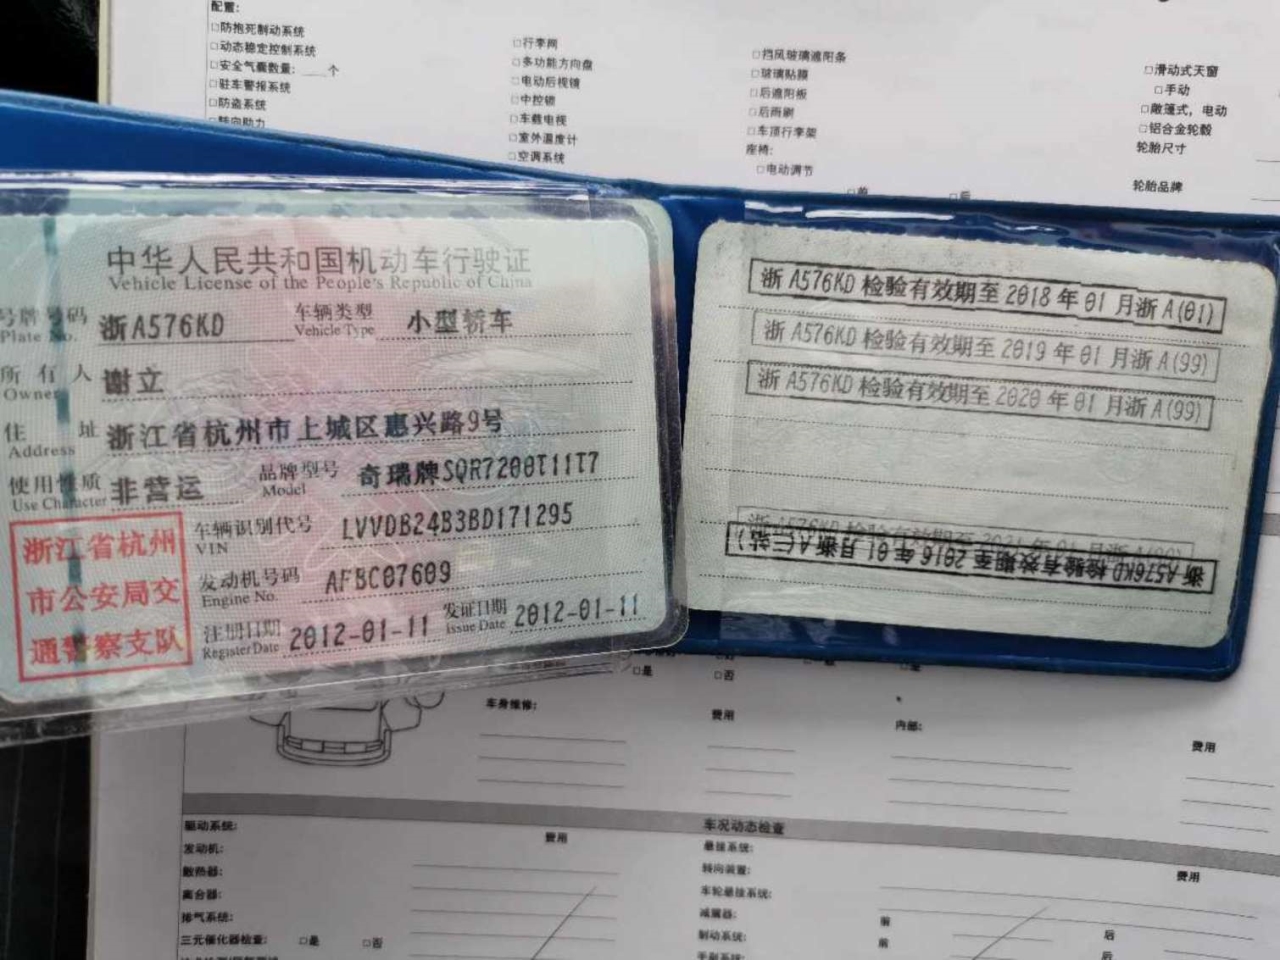 配置:
□防抱死制动系统
□动态稳定控制系统
□安全气囊数量:____个
□驻车警报系统
□防盗系统
□转向助力
□行李网
□多功能方向盘
□电动后视镜
□中控锁
□车载电视
□室外温度计
□空调系统
□挡风玻璃遮阳条
□玻璃贴膜
□后遮阳板
□后雨刷
□车顶行李架
座椅:
□电动调节
□前 □后
□滑动式天窗
□手动
□敞篷式，电动
□铝合金轮毂
轮胎尺寸
轮胎品牌
中华人民共和国机动车行驶证
Vehicle License of the People's Republic of China
号牌号码 浙A576KD 车辆类型 小型轿车
Plate No. Vehicle Type
所有人 谢立
Owner
住址 浙江省杭州市上城区惠兴路9号
Address
使用性质 非营运 品牌型号 奇瑞牌SQR7200T11T7
Use Character Model
车辆识别代号 LVVDB24B3BD171295
VIN
发动机号码 AFBC07609
Engine No.
注册日期 2012-01-11 发证日期 2012-01-11
Register Date Issue Date
浙江省杭州
市公安局交
通警察支队
浙A576KD检验有效期至2018年01月浙A(01)
浙A576KD检验有效期至2019年01月浙A(99)
浙A576KD检验有效期至2020年01月浙A(99)
浙A576KD检验有效期至2021年01月浙A(99)
浙A576KD检验有效期至2016年01月浙A(三站)
□是 □否
车身维修: 费用 内部: 费用
驱动系统: 费用
发动机:
散热器:
离合器:
排气系统:
三元催化器检查: □是 □否
车况动态检查
悬挂系统: 费用
转向装置:
车轮悬挂系统:
减震器: 前 后
制动系统: 前 后
手刹系统: